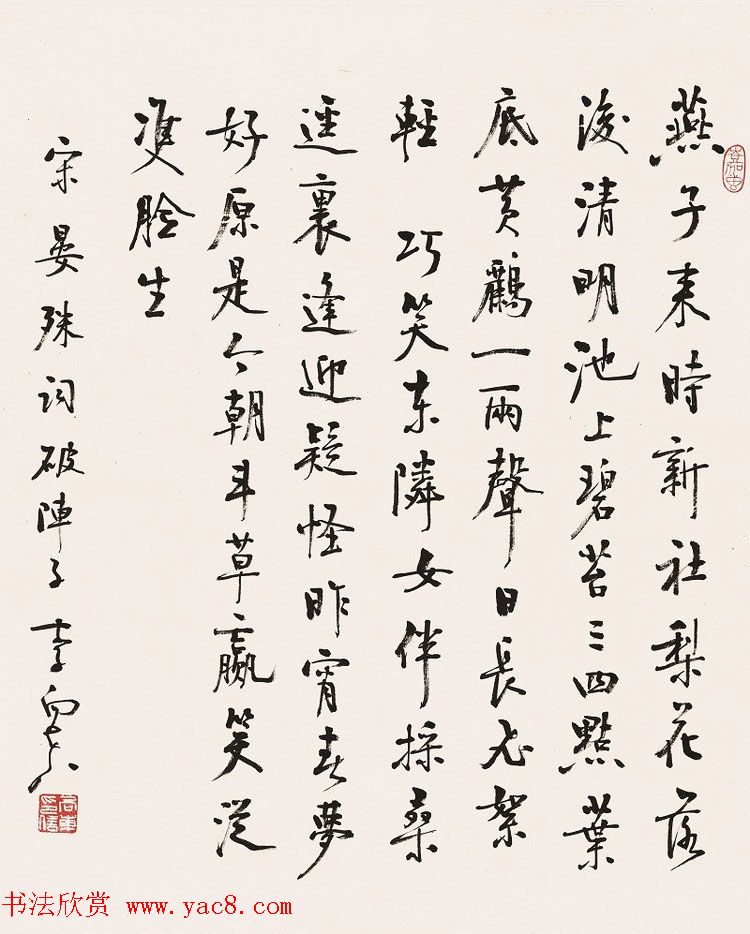 燕子来時新社梨花落
後清明池上碧苔三四點葉
底黄鸝一兩聲日長飛絮
輕 巧笑东隣女伴採桑
逕裏逢迎疑怪昨宵春夢
好原是今朝斗草贏笑從
雙脸生
宋晏殊詞破陣子 李向东
书法欣赏 www.yac8.com